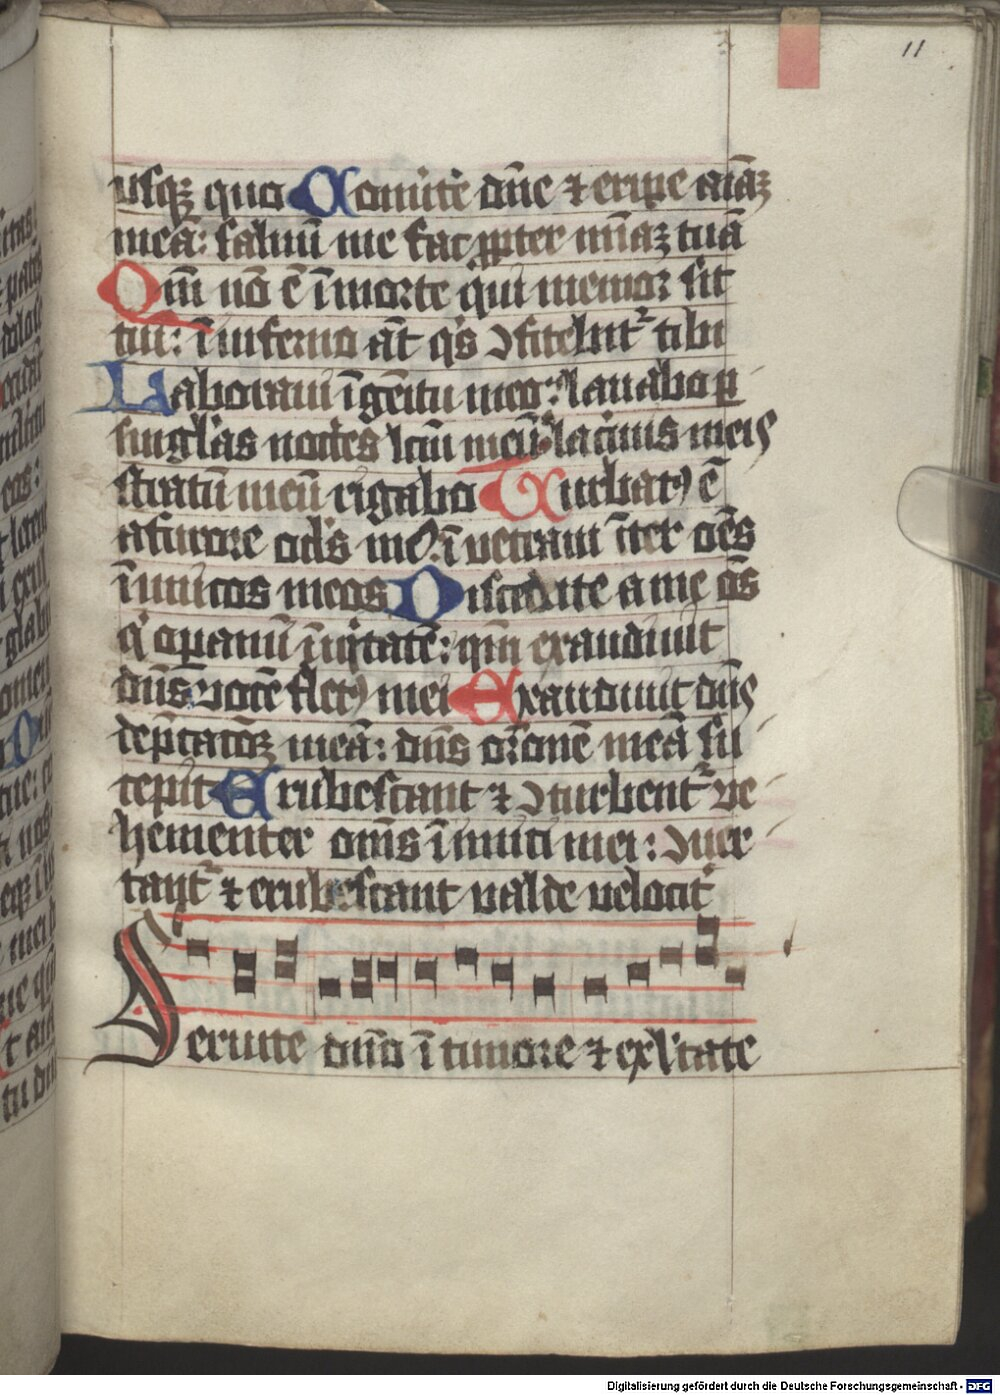 11
usqꝫ quo Conuite dn̄e ⁊ eripe aīaꝫ
meā: saluū me fac ꝓpter mīaꝫ tuā
Qm̄ nō ē ī morte qui memor sit
tui: ī inferno aūt qͥs ↄfitebit᷑ tibi
Laboraui ī gēitu meo: lauabo ꝑ
singl̓as noctes lcū meū lacͥmis meis
stratū meū rigabo Turbatꝰ ē
a furore ocl̓s mꝰ: ī veteraui īter oēs
īimicos meos Discedite a me oēs
qͥ oꝑamī īiqͥtatē: qm̄ exaudiuit
dn̄s vocē fletꝰ mei Exaudiuit dn̄s
dep̄catōꝫ meā: dn̄s or̄onē meā su
scepit Erubescant ⁊ ↄturbent᷑ ve
hementer oms īimici mei: ↄuer
tant᷑ ⁊ erubescant valde velocit͛
Seruite dn̄o ī timore ⁊ exl̓tate
Digitalisierung gefördert durch die Deutsche Forschungsgemeinschaft - DFG